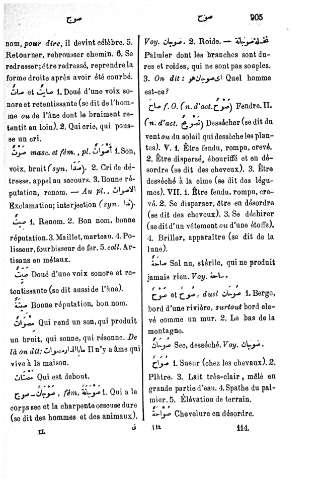 صوج
صوج
905
nom, pour dire, il devint célèbre. 5.
Retourner, rebrousser chemin. 6. Se
redresser; être redressé, reprendre la
forme droite après avoir été courbé.
صَائِت et صَاتٌ 1. Doué d'une voix so-
nore et retentissante (se dit de l'hom-
me ou de l'âne dont le braiment re-
tentit au loin). 2. Qui crie, qui pous-
se un cri.
صَوْتٌ masc. et fém., pl. أَصْوَاتٌ 1. Son,
voix, bruit (syn. نداء). 2. Cri de dé-
tresse, appel au secours. 3. Bonne ré-
putation, renom. — Au pl., الاصوات
Exclamation; interjection (syn. ندا).
صِيتٌ 1. Renom. 2. Bon nom, bonne
réputation. 3. Maillet, marteau. 4. Po-
lisseur, fourbisseur de fer. 5. coll. Ar-
tisans en métaux.
صَيِّتٌ Doué d'une voix sonore et re-
tentissante (se dit aussi de l'âne).
صِيتَةٌ Bonne réputation, bon nom.
مِصْوَاتٌ Qui rend un son, qui produit
un bruit, qui sonne, qui résonne. De
là on dit: ما بالدار مصوات Il n'y a âme qui
vive à la maison.
Qui est debout.
صوج — صَوْجَانٌ, fém. صَوْجَانَةٌ 1. Qui a le
corps sec et la charpente osseuse dure
(se dit des hommes et des animaux).
II.
Voy. صوجان. 2. Roide. — نخلة صوجانة
Palmier dont les branches sont du-
res et roides, qui ne sont pas souples.
3. On dit: اى صوجان هو Quel homme
est-ce?
صاح f. O. (n. d'act. صَوْحٌ) Fendre. II.
(n. d'act. تصويح) Dessécher (se dit du
vent ou du soleil qui dessèche les plan-
tes). V. 1. Être fendu, rompu, crevé.
2. Être dispersé, ébouriffé et en dé-
sordre (se dit des cheveux). 3. Être
desséché à la cime (se dit des légu-
mes). VII. 1. Être fendu, rompu, cre-
vé. 2. Se disparser, être en désordre
(se dit des cheveux). 3. Se déchirer
(se dit d'un vêtement ou d'une étoffe).
4. Briller, apparaître (se dit de la
lune).
صَاحَةٌ Sol nu, stérile, qui ne produit
jamais rien. Voy. ساحة.
صَوْحٌ et صُوحٌ, duel صوحان 1. Berge,
bord d'une rivière, surtout bord élevé
comme un mur. 2. Le bas de la
montagne.
صَوْحَانٌ Sec, desséché. Voy. صوجان.
صُوَاحٌ 1. Sueur (chez les chevaux). 2.
Plâtre. 3. Lait très-clair, mêlé en
grande partie d'eau. 4. Spathe du pal-
mier. 5. Élévation de terrain.
صُوَاحَةٌ Chevelure en désordre.
114.